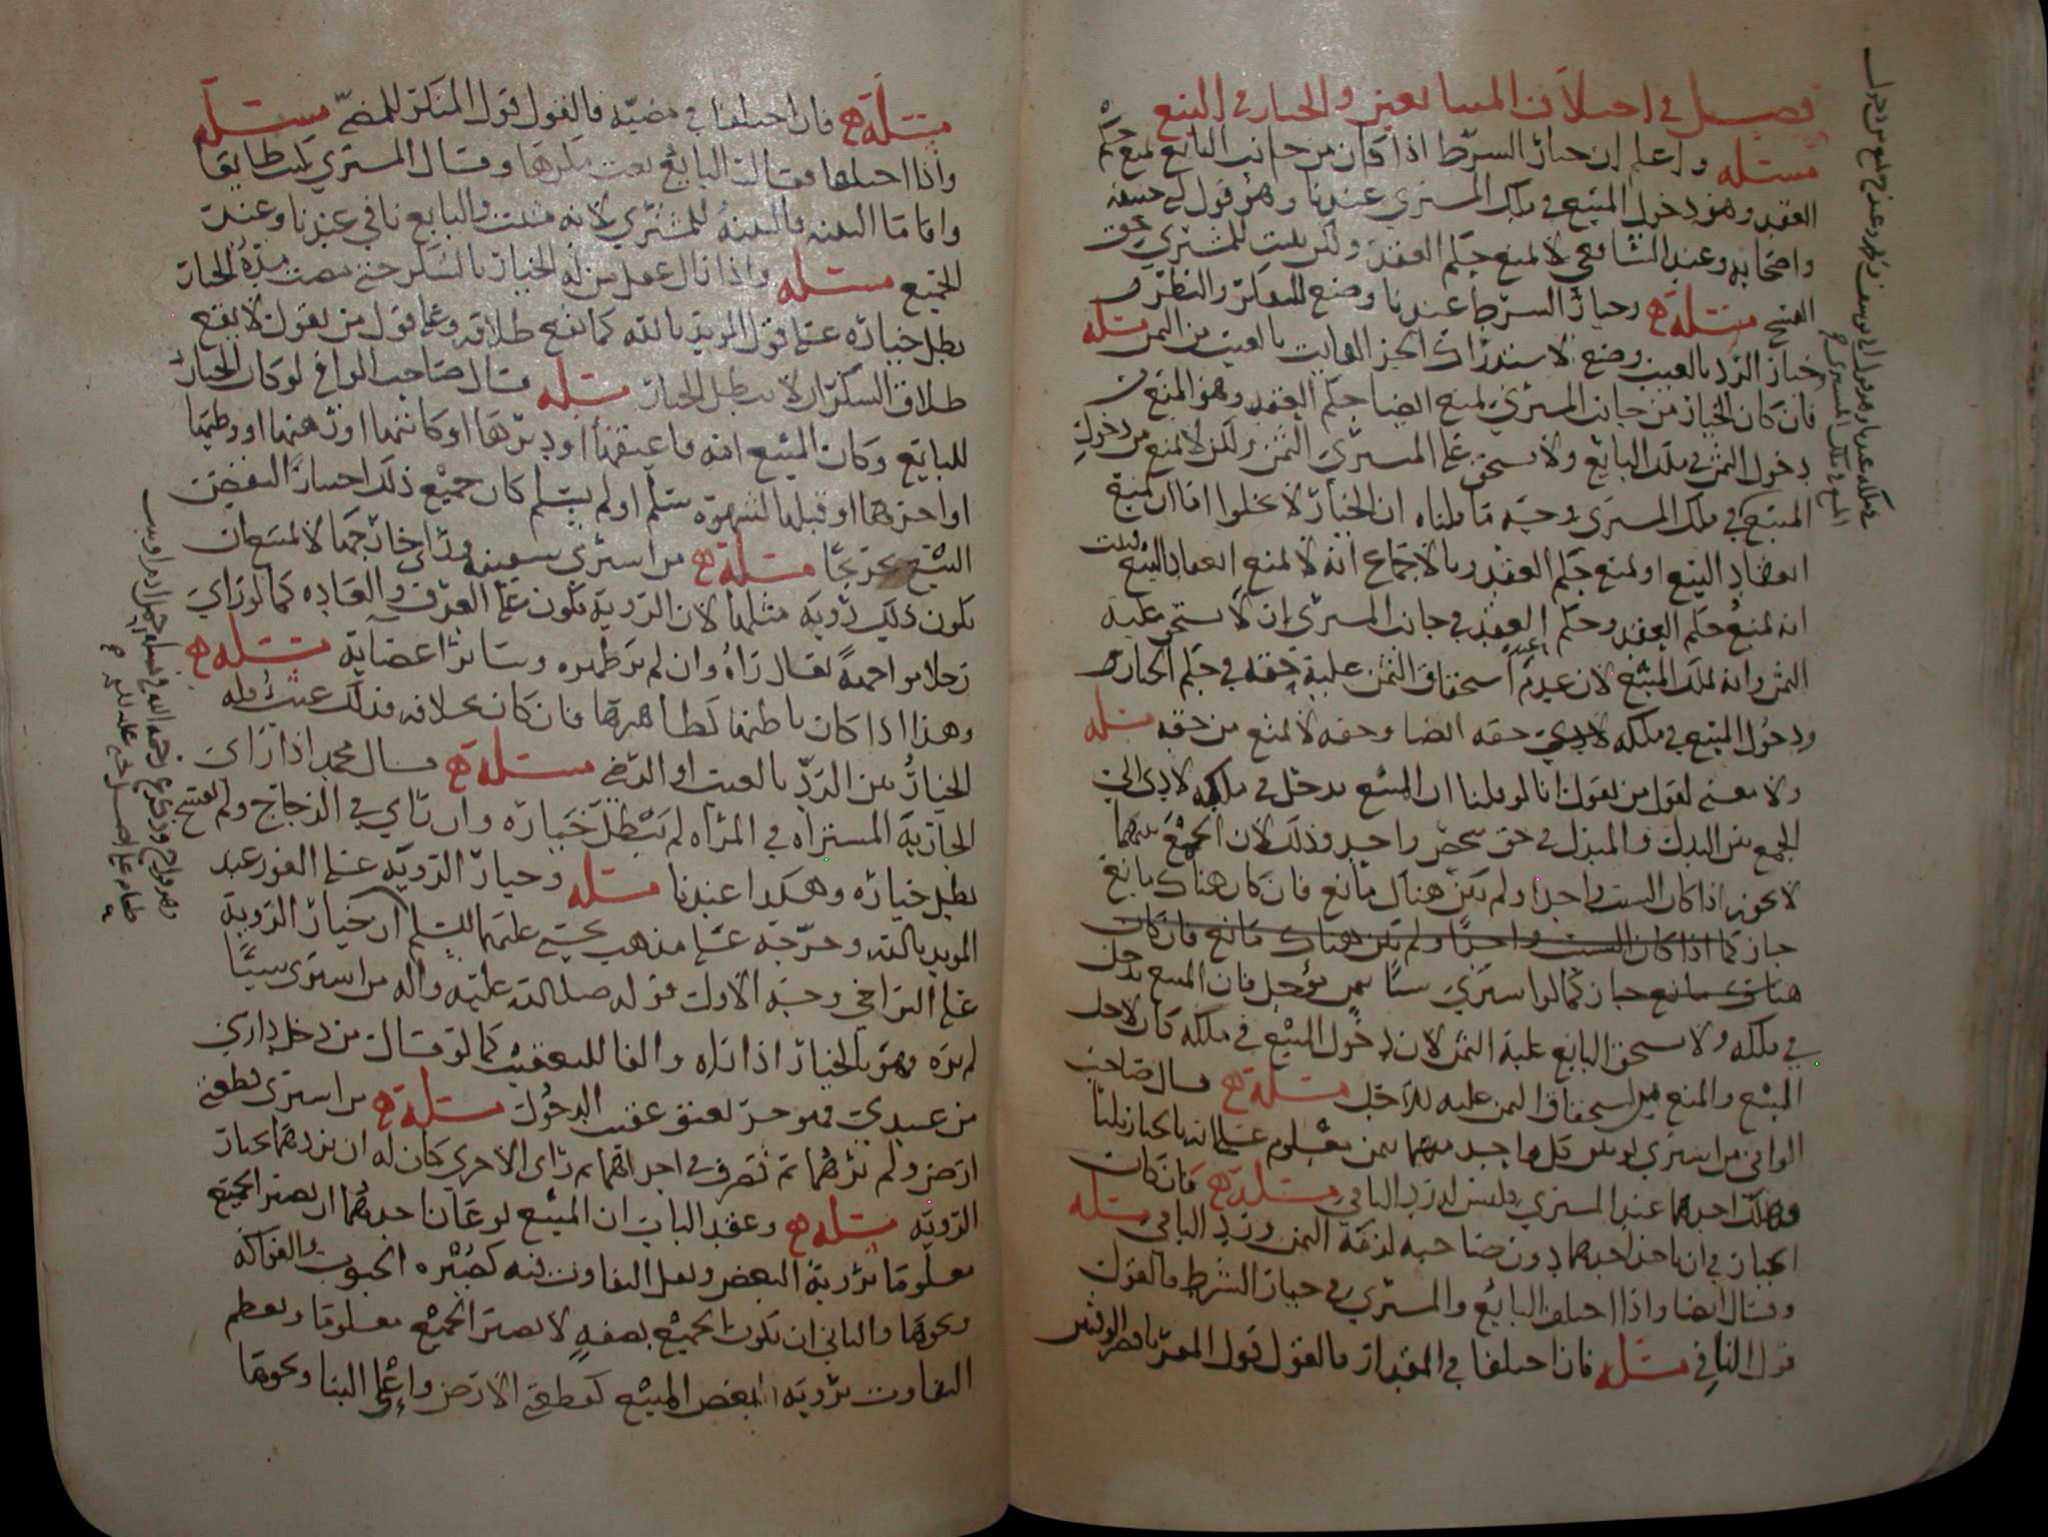 فصل في اختلاف المتبايعين والخيار في البيع
مسئلة واعلم ان خيار الشرط اذا كان من جانب البايع لمنع حكم
العقد وهو دخول المبيع في ملك المشتري عندنا وهو قول ابي حنيفة
واصحابه وعند الشافعي لا يمنع حكم العقد ولكن يثبت للمشتري حق
الفسخ مسئلة وخيار الشرط عندنا وضع للتفكر والنظر و
خيار الرد بالعيب وضع لاستدراك الجزء الفايت بالعيب من الثمن مسئلة
فان كان الخيار من جانب المشتري لمنع ايضا حكم العقد وهو المنع من
دخول الثمن في ملك البايع ولا يستحق على المشتري الثمن ولكن لا يمنع من دخول
المبيع في ملك المشتري وجه ما قلناه ان الخيار لا يخلوا اما ان يمنع
انعقاد البيع او يمنع حكم العقد وبالاجماع انه لا يمنع انعقاد البيع فثبت
انه يمنع حكم العقد وحكم العقد في جانب المشتري ان لا يستحق عليه
الثمن وانه يملك المبيع لان عدم استحقاق الثمن عليه حقه في حكم الخيار
ودخول المبيع في ملكه حقه ايضا وحقه لا يمنع من حقه مسئلة
ولا معنى لقول من يقول انا لو قلنا ان المبيع يدخل في ملكه لادى الى
الجمع بين البدل والمبدل في حق شخص واحد وذلك لان الجمع بينهما
لا يجوز اذا كان السبب واحدا ولم يكن هناك مانع فان كان هناك مانع
جاز كما اذا كان السبب واحدا ولم يكن هناك مانع فان كان
هناك مانع جاز كما لو اشترى شيئا بثمن مؤجل فان المبيع يدخل
في ملكه ولا يستحق البايع عليه الثمن لان دخول المبيع في ملكه كان لاجل
المبيع والمنع من استحقاق الثمن عليه للاجل مسئلة قال صاحب
الوافي من اشترى ثوبين كل واحد منهما بثمن معلوم على انه بالخيار ثلثا
فهلك احدهما عند المشتري فليس له رد الباقي مسئلة فان كان
الخيار في ان ياخذ احدهما دون صاحبه لزمه الثمن ورد الباقي مسئلة
وقال ايضا واذا اختلف البايع والمشتري في خيار الشرط فالقول
قول النافي مسئلة فان اختلفا في المقدار فالقول قول المقر باقصر الوقتين
مسئلة فان اختلفا في مضيه فالقول قول المنكر للمضي مسئلة
واذا اختلفا فقال البايع بعت مكرها وقال المشتري بل بعت طايعا
واقاما البينة فالبينة للمشتري لانه مثبت والبايع نافي عندنا وعند
الجميع مسئلة واذا زال عقل من له الخيار بالسكر حتى مضت مدة الخيار
بطل خياره على قول المؤيد بالله كما يقع طلاقه وعلى قول من يقول لا يقع
طلاق السكران لا يبطل الخيار مسئلة قال صاحب الوافي لو كان الخيار
للبايع وكان المبيع امة فاعتقها او دبرها او كاتبها او رهنها او وطئها
او اجرها او قبلها لشهوة سلم او لم يسلم كان جميع ذلك اختيارا لنقض
البيع تخريجا مسئلة من اشترى سفينة وراى خارجها لا يمتنع ان
يكون ذلك رؤية مثلها لان الرؤية تكون على العرف والعادة كما لو راى
رجلا من احمه يقال رآه وان لم ير ظهره وسائر اعضايه مسئلة
وهذا اذا كان باطنها كظاهرها فان كان بخلافه فذلك عيب وله
الخيار بين الرد بالعيب او الرضى مسئلة قال محمد اذا راى
الجارية المشتراه في المرآه لم يبطل خياره وان راى في الزجاج ولم يفسخ
بطل خياره وهكذا عندنا مسئلة وخيار الرؤية على الفور عند
المؤيد بالله وخرجه على مذهب يحيى عليهما السلم ان خيار الرؤية
على التراخي وجه الاول قوله صلى الله عليه واله من اشترى شيئا
لم يره فهو بالخيار اذا رآه والفا للتعقيب كما لو قال من دخل داري
من عبيدي فهو حر يعتق عقيب الدخول مسئلة من اشترى قطعتي
ارض ولم يرهما ثم تصرف في احداهما ثم راى الاخرى كان له ان يردهما بخيار
الرؤية مسئلة وعقد الباب ان المبيع نوعان احدهما ان يصير الجميع
معلوما برؤية البعض ويقل التفاوت فيه كصبرة الحبوب والفواكه
ونحوها والثاني ان يكون الجميع بصفة لا يصير الجميع معلوما ويعظم
التفاوت برؤية البعض المبيع كقطعتي الارض واعلى البنا ونحوها